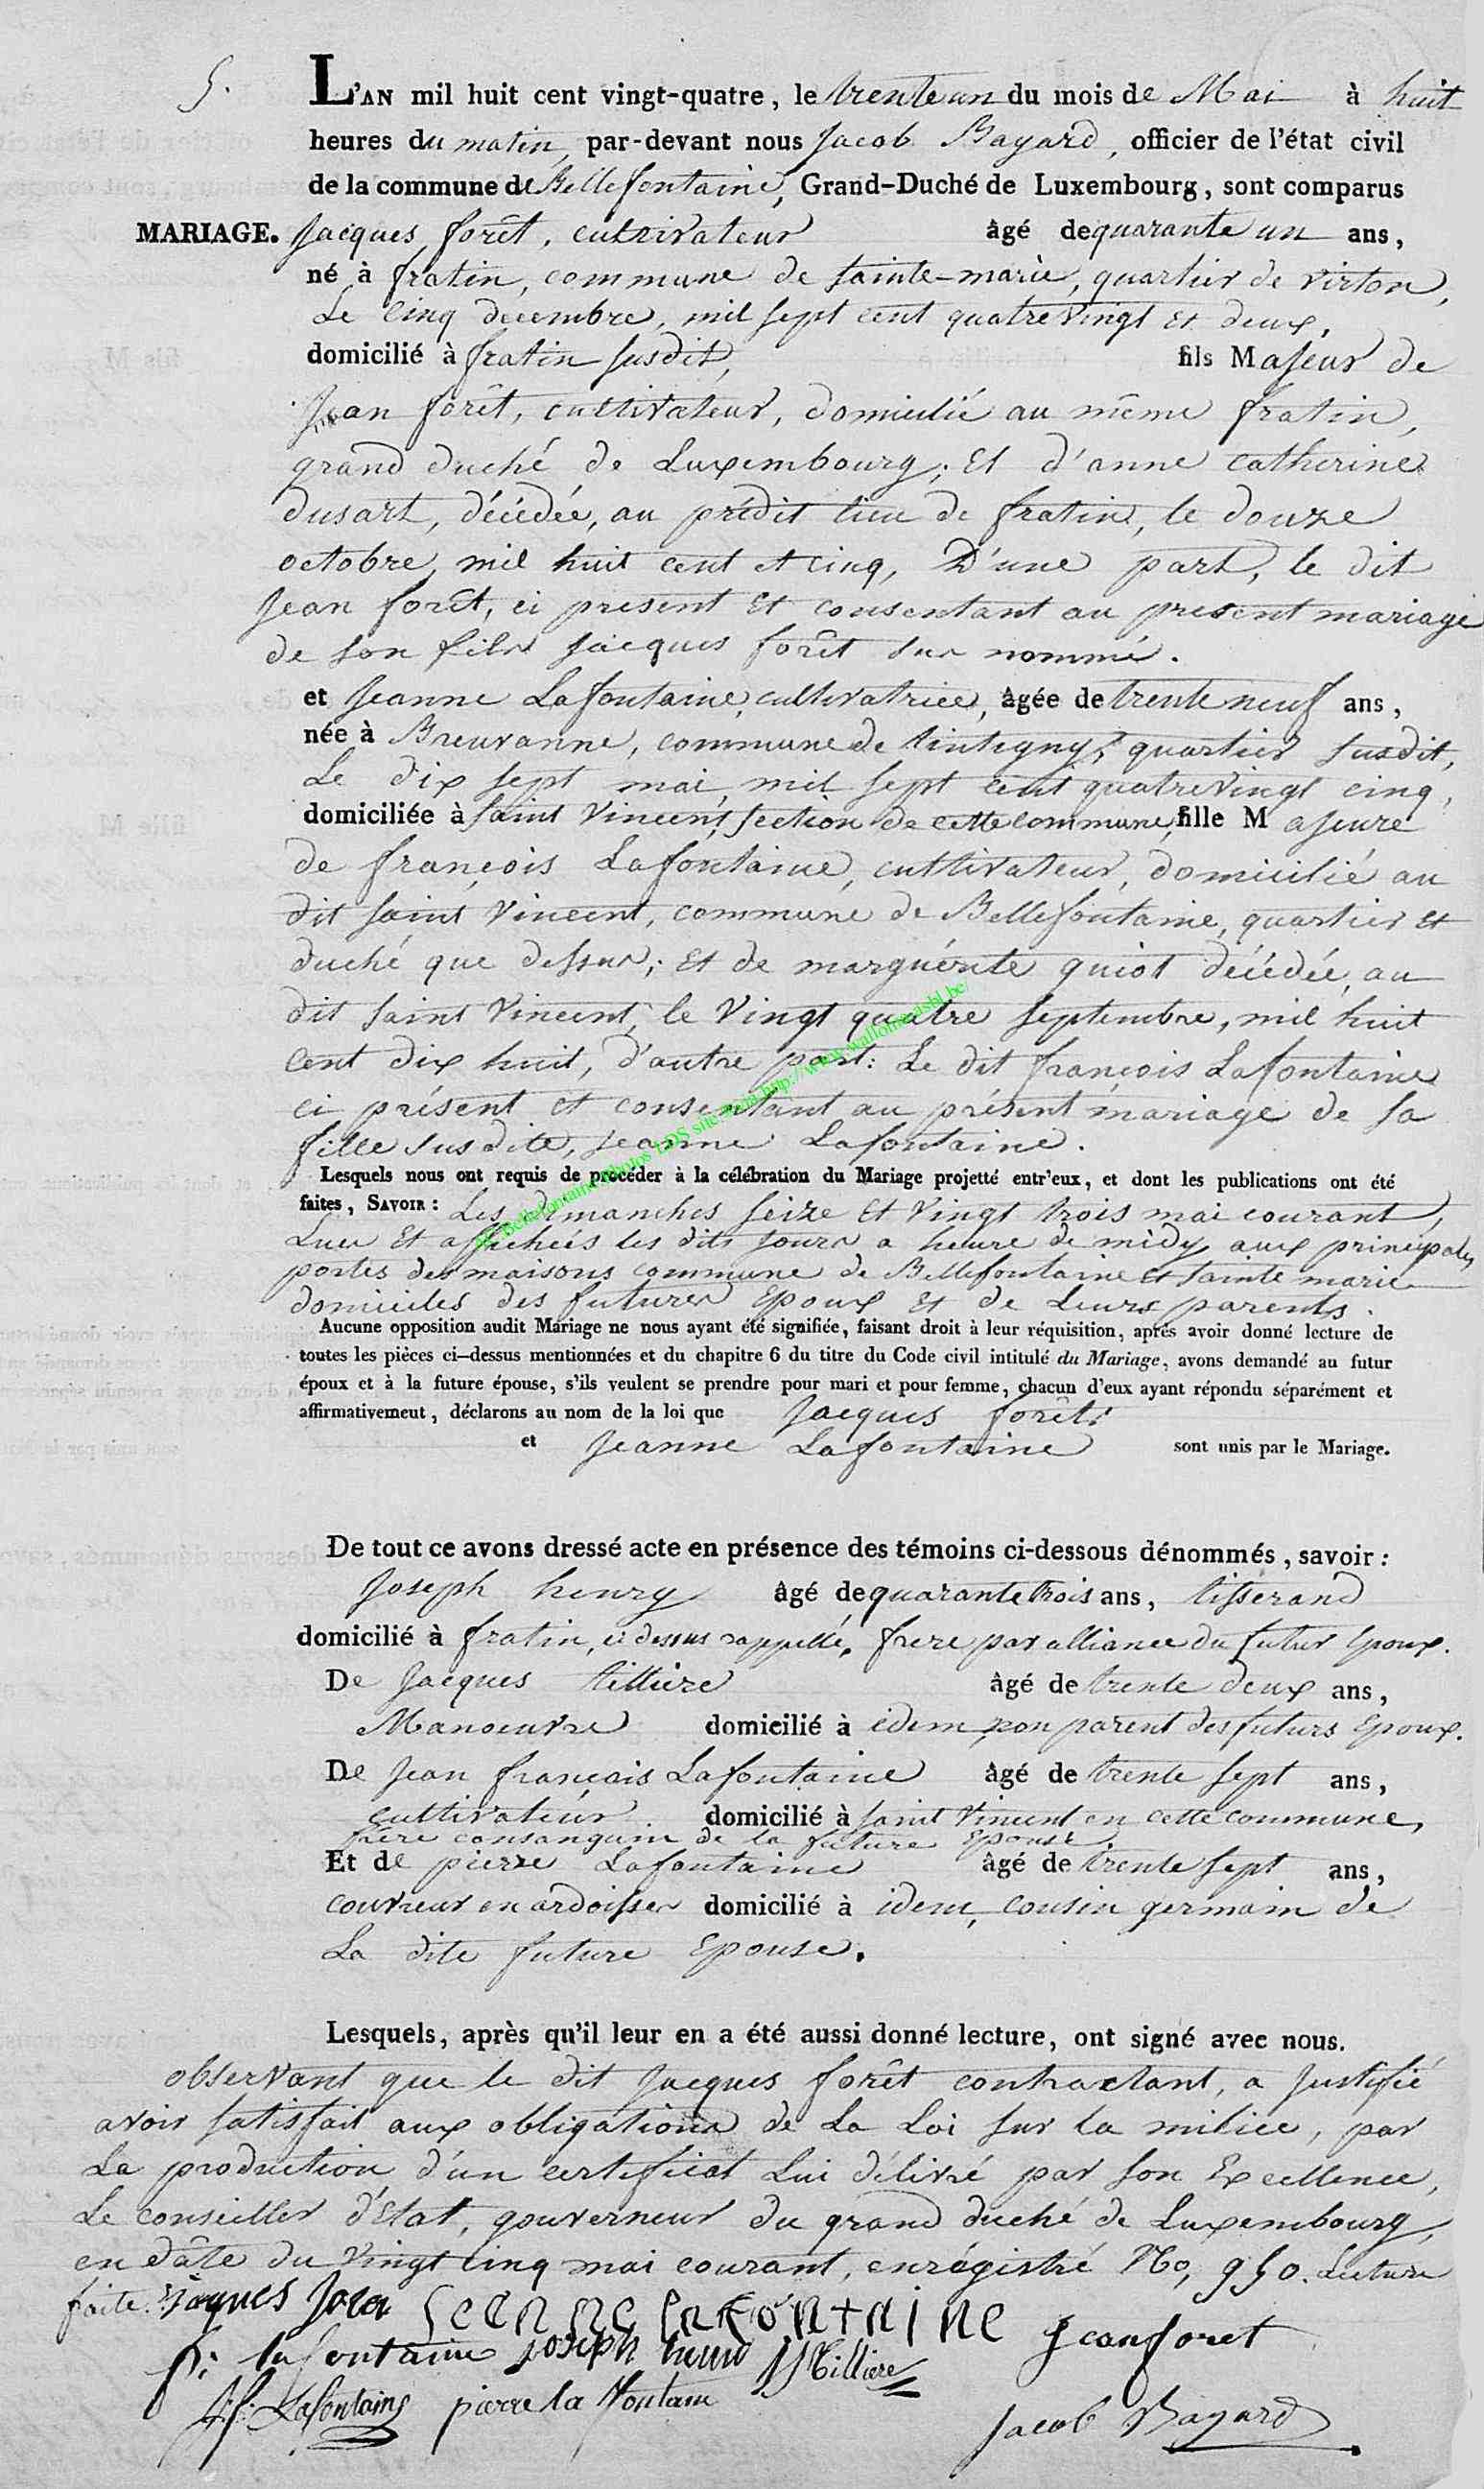 5.
L'AN mil huit cent vingt-quatre, le trente un du mois de Mai à huit
heures du matin, par-devant nous Jacob Bayard, officier de l'état civil
de la commune de Bellefontaine, Grand-Duché de Luxembourg, sont comparus
MARIAGE. Jacques forêt, cultivateur âgé de quarante un ans,
né à fratin, commune de Sainte-marie, quartier de virton,
Le Cinq decembre, mil sept cent quatre vingt et deux,
domicilié à fratin susdit, fils Majeur de
Jean forêt, cultivateur, domicilié au même fratin,
grand duché de Luxembourg; Et d'anne catherine
dusart, décédée, au prédit lieu de fratin, le douze
octobre, mil huit cent et cinq, D'une part, le dit
Jean forêt, ci present Et consentant au present mariage
de son fils Jacques forêt sus nommé.
et Jeanne Lafontaine, cultivatrice, âgée de trente neuf ans,
née à Breuvanne, commune de tintigny, quartier susdit,
Le dix sept mai, mil sept cent quatre vingt cinq,
domiciliée à Saint Vincent, Section de cette commune, fille Majeure
de françois Lafontaine, cultivateur, domicilié au
dit Saint Vincent, commune de Bellefontaine, quartier et
duché que dessus; Et de marguérite quiot décédée, au
dit Saint Vincent, le Vingt quatre septembre, mil huit
cent dix huit, d'autre part: Le dit françois Lafontaine
ci présent et consentant au présent mariage de sa
fille susdite, Jeanne Lafontaine.
Lesquels nous ont requis de procéder à la célébration du Mariage projetté entr'eux, et dont les publications ont été
faites, SAVOIR: Les dimanches seize Et Vingt trois mai courant,
Lues Et affichées les dits jours a heure de midy aux principales
portes des maisons commune de Bellefontaine et Sainte marie
domiciles des futures Epoux Et de Leurs parents.
Aucune opposition audit Mariage ne nous ayant été signifiée, faisant droit à leur réquisition, après avoir donné lecture de
toutes les pièces ci-dessus mentionnées et du chapitre 6 du titre du Code civil intitulé du Mariage, avons demandé au futur
époux et à la future épouse, s'ils veulent se prendre pour mari et pour femme, chacun d'eux ayant répondu séparément et
affirmativement, déclarons au nom de la loi que Jacques forêt
et Jeanne Lafontaine sont unis par le Mariage.
De tout ce avons dressé acte en présence des témoins ci-dessous dénommés, savoir:
Joseph henry âgé de quarante trois ans, tisserand
domicilié à fratin, ci dessus rappellé, frere par alliance du futur Epoux.
De Jacques tilliere âgé de trente deux ans,
Manoeuvre domicilié à idem, non parent des futurs Epoux.
De Jean français Lafontaine âgé de trente sept ans,
cultivateur domicilié à Saint Vincent en cette commune,
frère consanguin de la future Epouse
Et de pierre Lafontaine âgé de trente sept ans,
couvreur en ardoisses domicilié à idem, cousin germain de
La dite future Epouse.
Lesquels, après qu'il leur en a été aussi donné lecture, ont signé avec nous.
observant que le dit Jacques forêt contractant, a justifié
avoir satisfait aux obligations de La Loi sur la milice, par
La production d'un certificat Lui délivré par Son Excellence,
Le conseiller d'Etat, gouverneur du grand duché de Luxembourg,
en dâte du Vingt cinq mai courant, enrégistré No, 950. Lecture
faite.
Jeanforet
joseph
JJ Tilliere
J.f. Lafontaine
Jacob Bayard